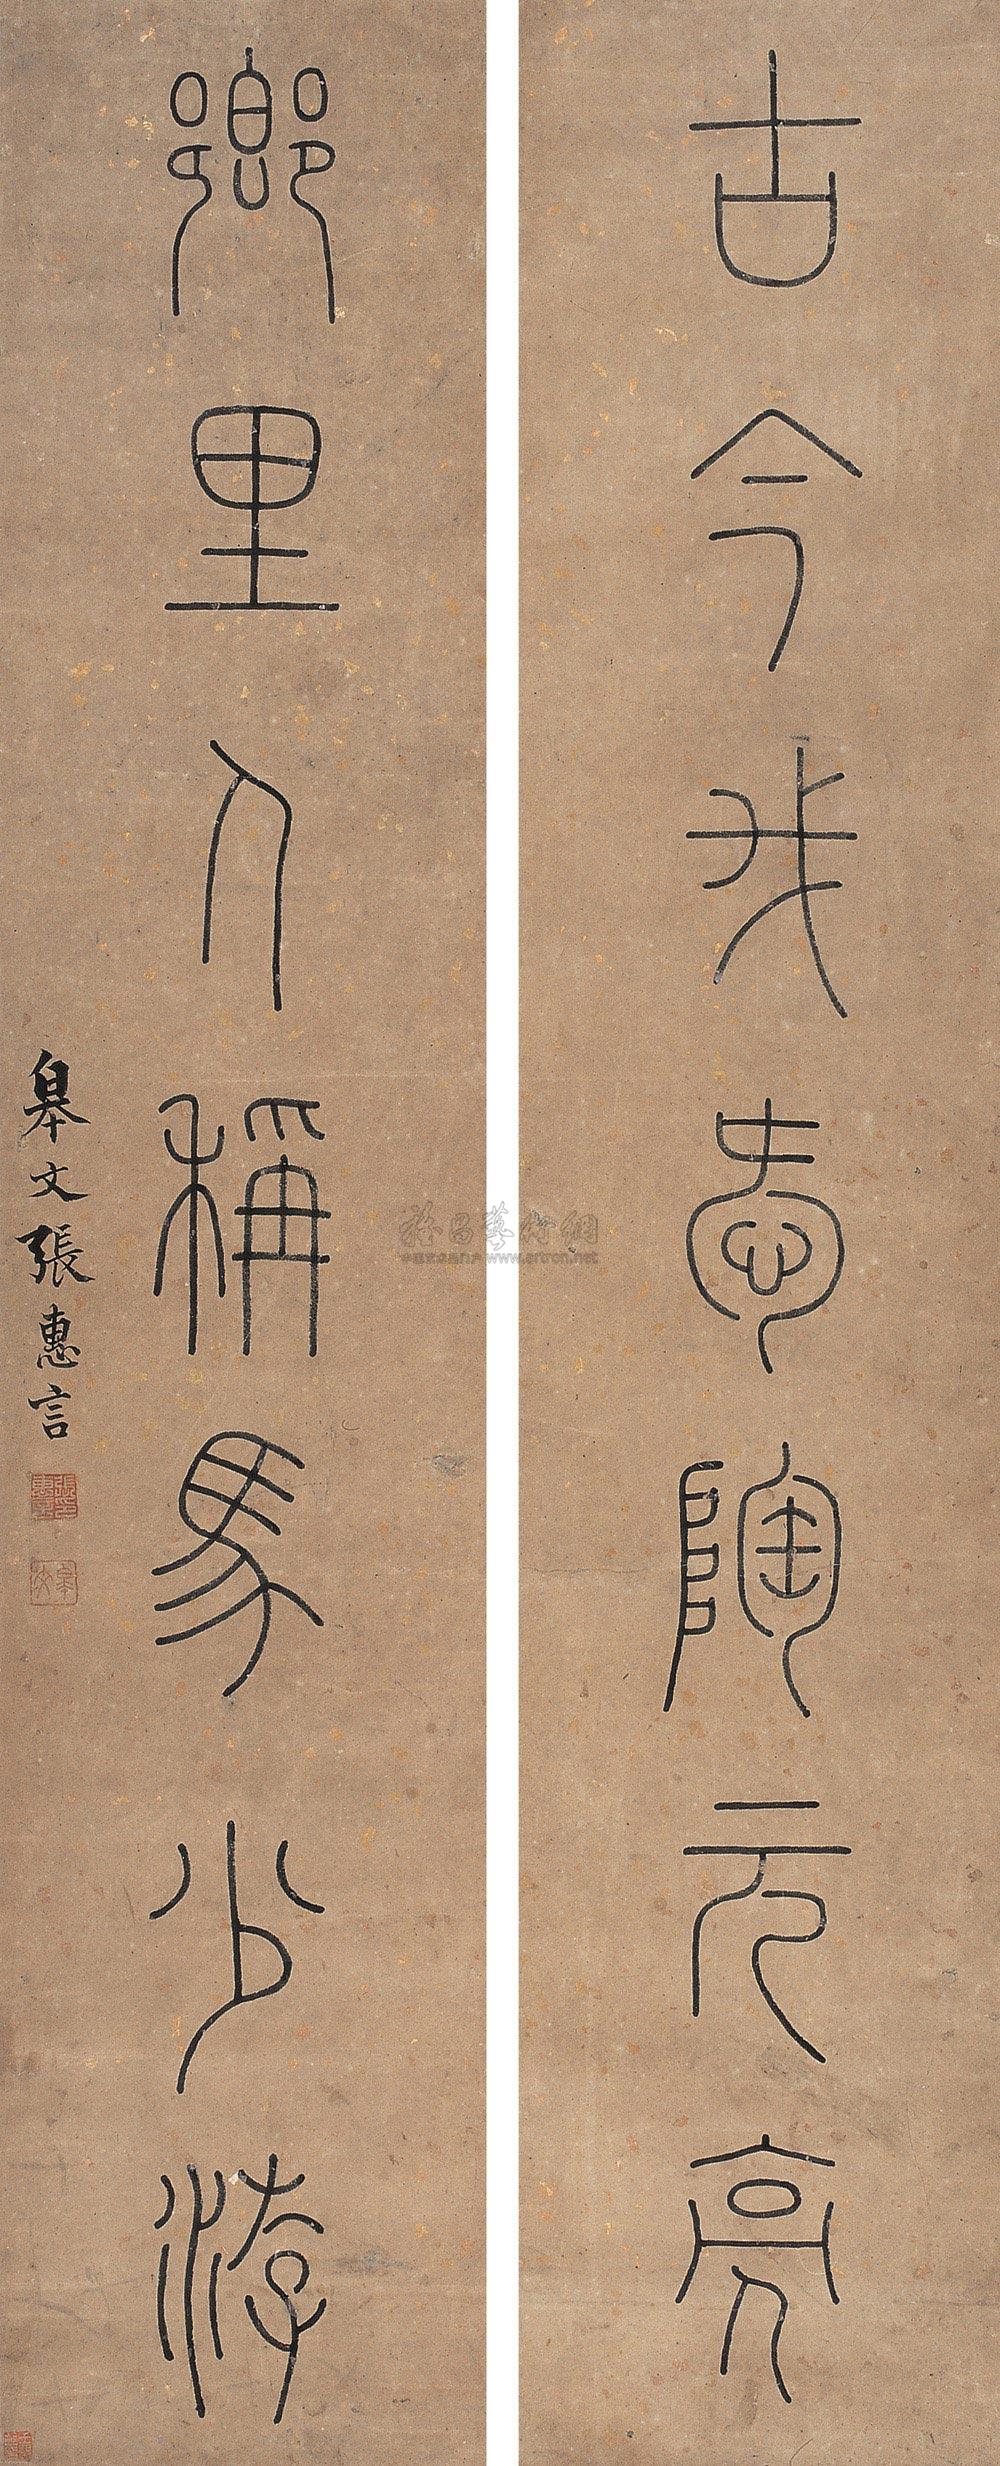 古今我愛陶元亮
鄉里人稱馬少游
皋文張惠言
雅昌藝術網
www.artron.net